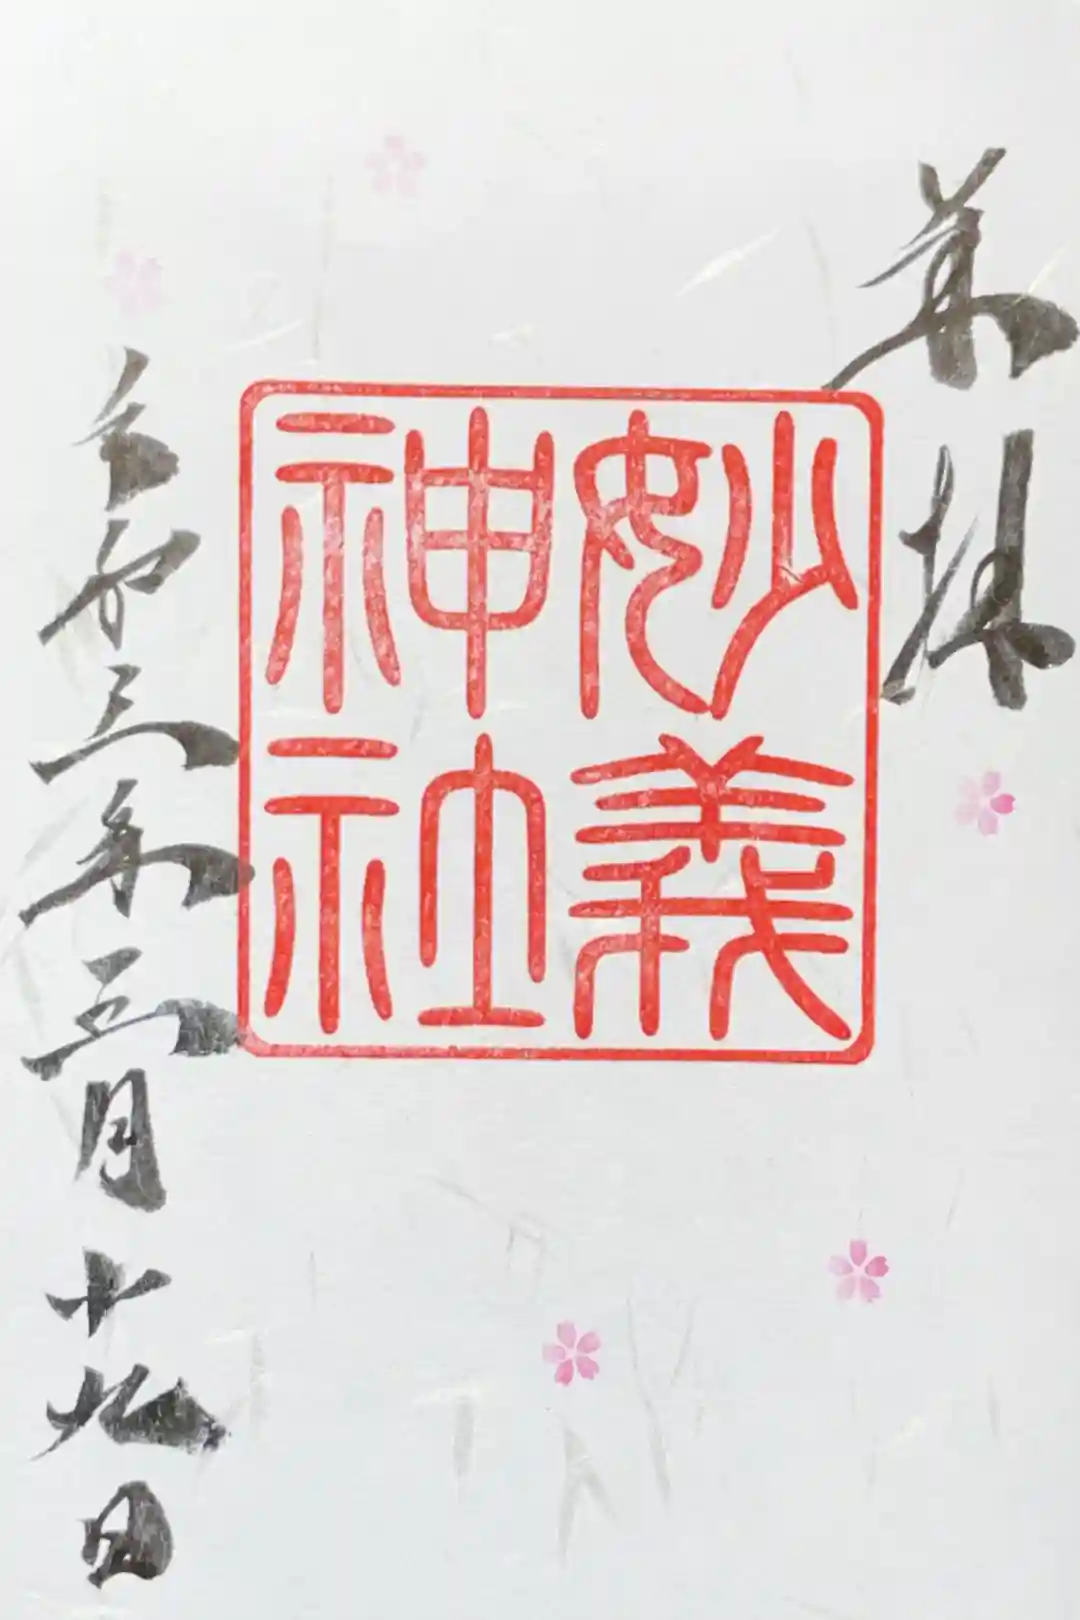 奉拝
妙義
神社
令和三年三月十九日